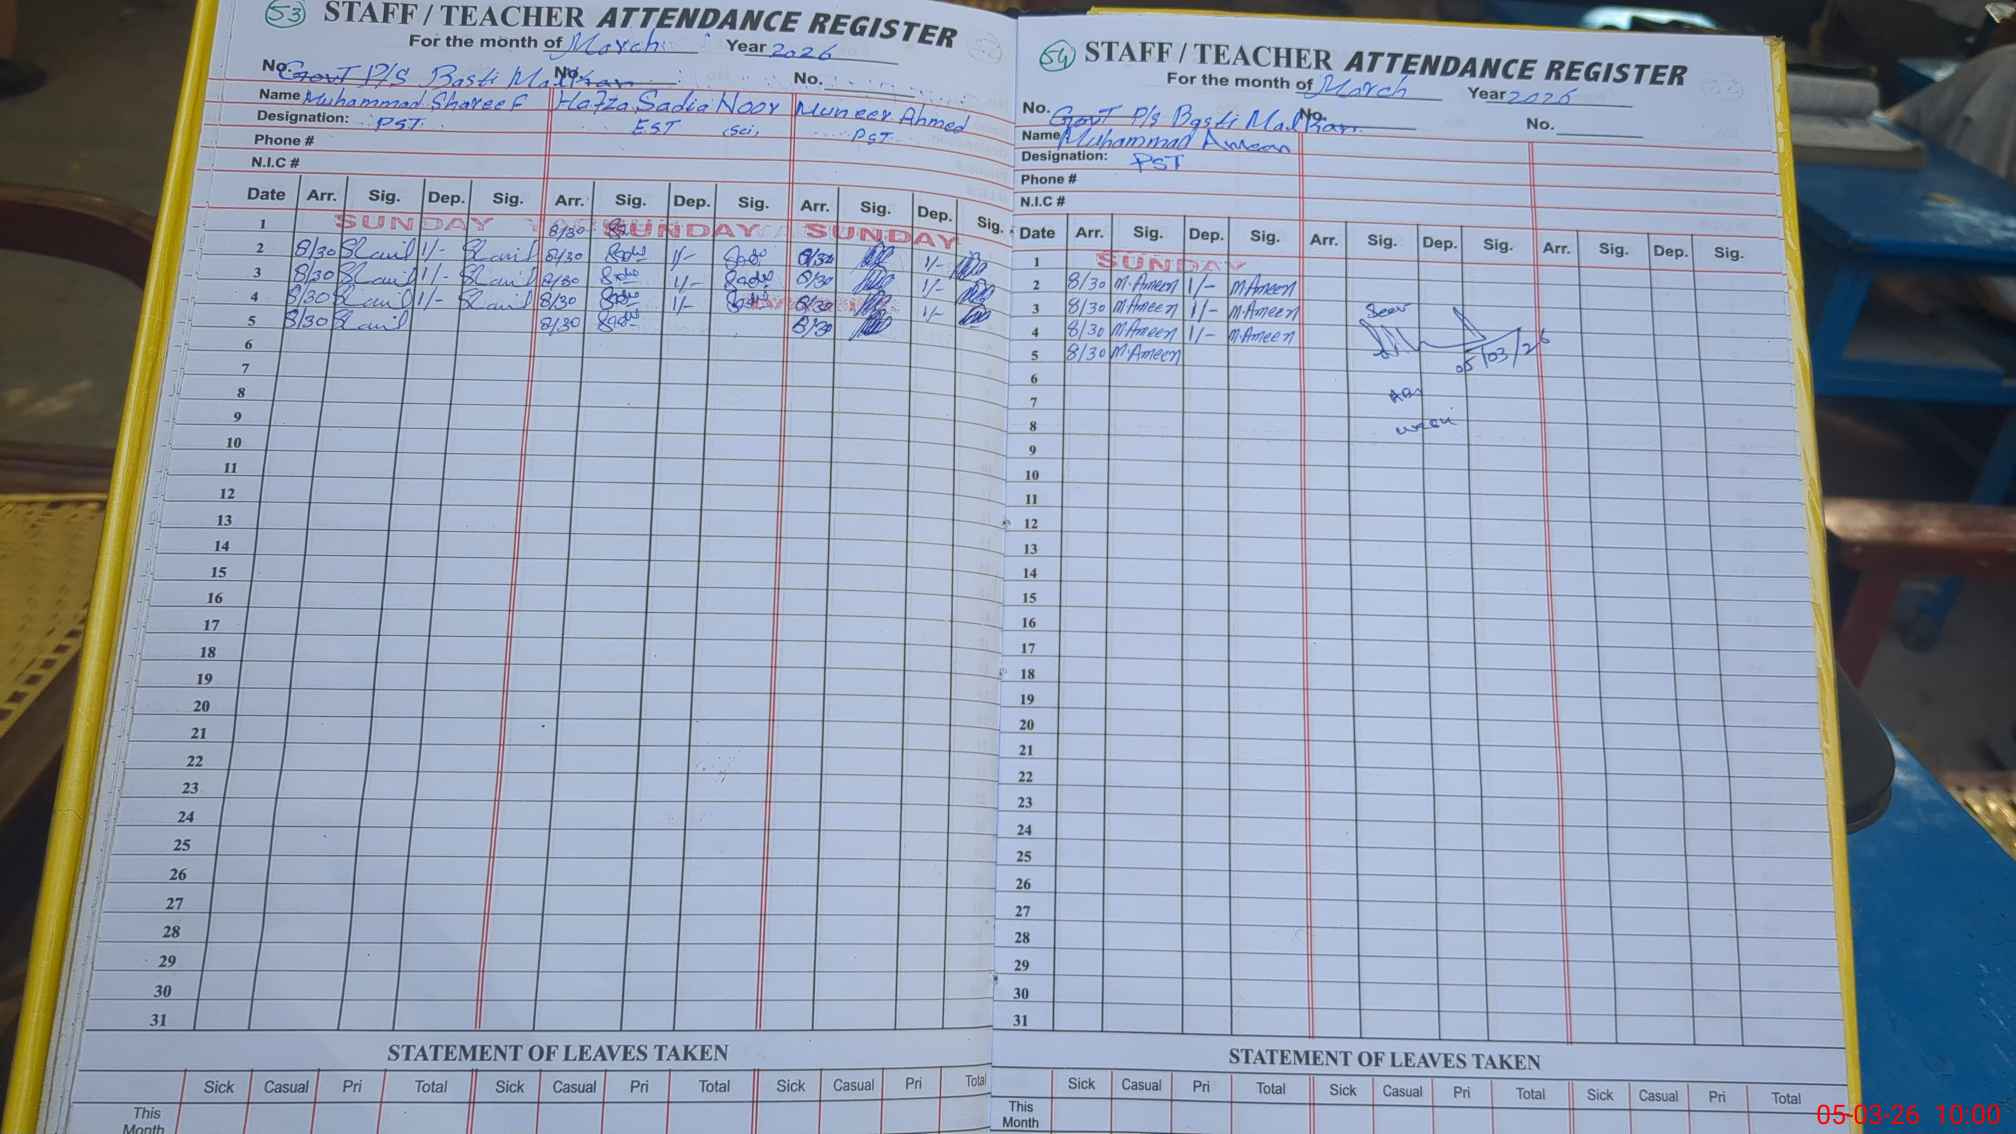 53 STAFF / TEACHER ATTENDANCE REGISTER
For the month of March Year 2026
No. Govt P/S Basti Malkan No. No.
Name Muhammad Shareef Hafza Sadia Noor Muneer Ahmed
Designation: PST EST (Sci) PST
Phone #
N.I.C #
Date Arr. Sig. Dep. Sig. Arr. Sig. Dep. Sig. Arr. Sig. Dep. Sig.
1 SUNDAY 8/30 SUNDAY SUNDAY
2 8/30 1/- 8/30 1/- 8/30 1/-
3 8/30 1/- 8/30 1/- 8/30 1/-
4 8/30 1/- 8/30 1/- 8/30 1/-
5 8/30 8/30 8/30
6
7
8
9
10
11
12
13
14
15
16
17
18
19
20
21
22
23
24
25
26
27
28
29
30
31
STATEMENT OF LEAVES TAKEN
Sick Casual Pri Total Sick Casual Pri Total Sick Casual Pri Total
This
Month
54 STAFF / TEACHER ATTENDANCE REGISTER
For the month of March Year 2026
No. Govt P/S Basti Malkan No. No.
Name Muhammad Ameen
Designation: PST
Phone #
N.I.C #
Date Arr. Sig. Dep. Sig. Arr. Sig. Dep. Sig. Arr. Sig. Dep. Sig.
1 SUNDAY
2 8/30 M.Ameen 1/- M.Ameen
3 8/30 M.Ameen 1/- M.Ameen Seen
4 8/30 M.Ameen 1/- M.Ameen
5 8/30 M.Ameen 05/03/26
6
7
8
9
10
11
12
13
14
15
16
17
18
19
20
21
22
23
24
25
26
27
28
29
30
31
STATEMENT OF LEAVES TAKEN
Sick Casual Pri Total Sick Casual Pri Total Sick Casual Pri Total
This
Month
05-03-26 10:00